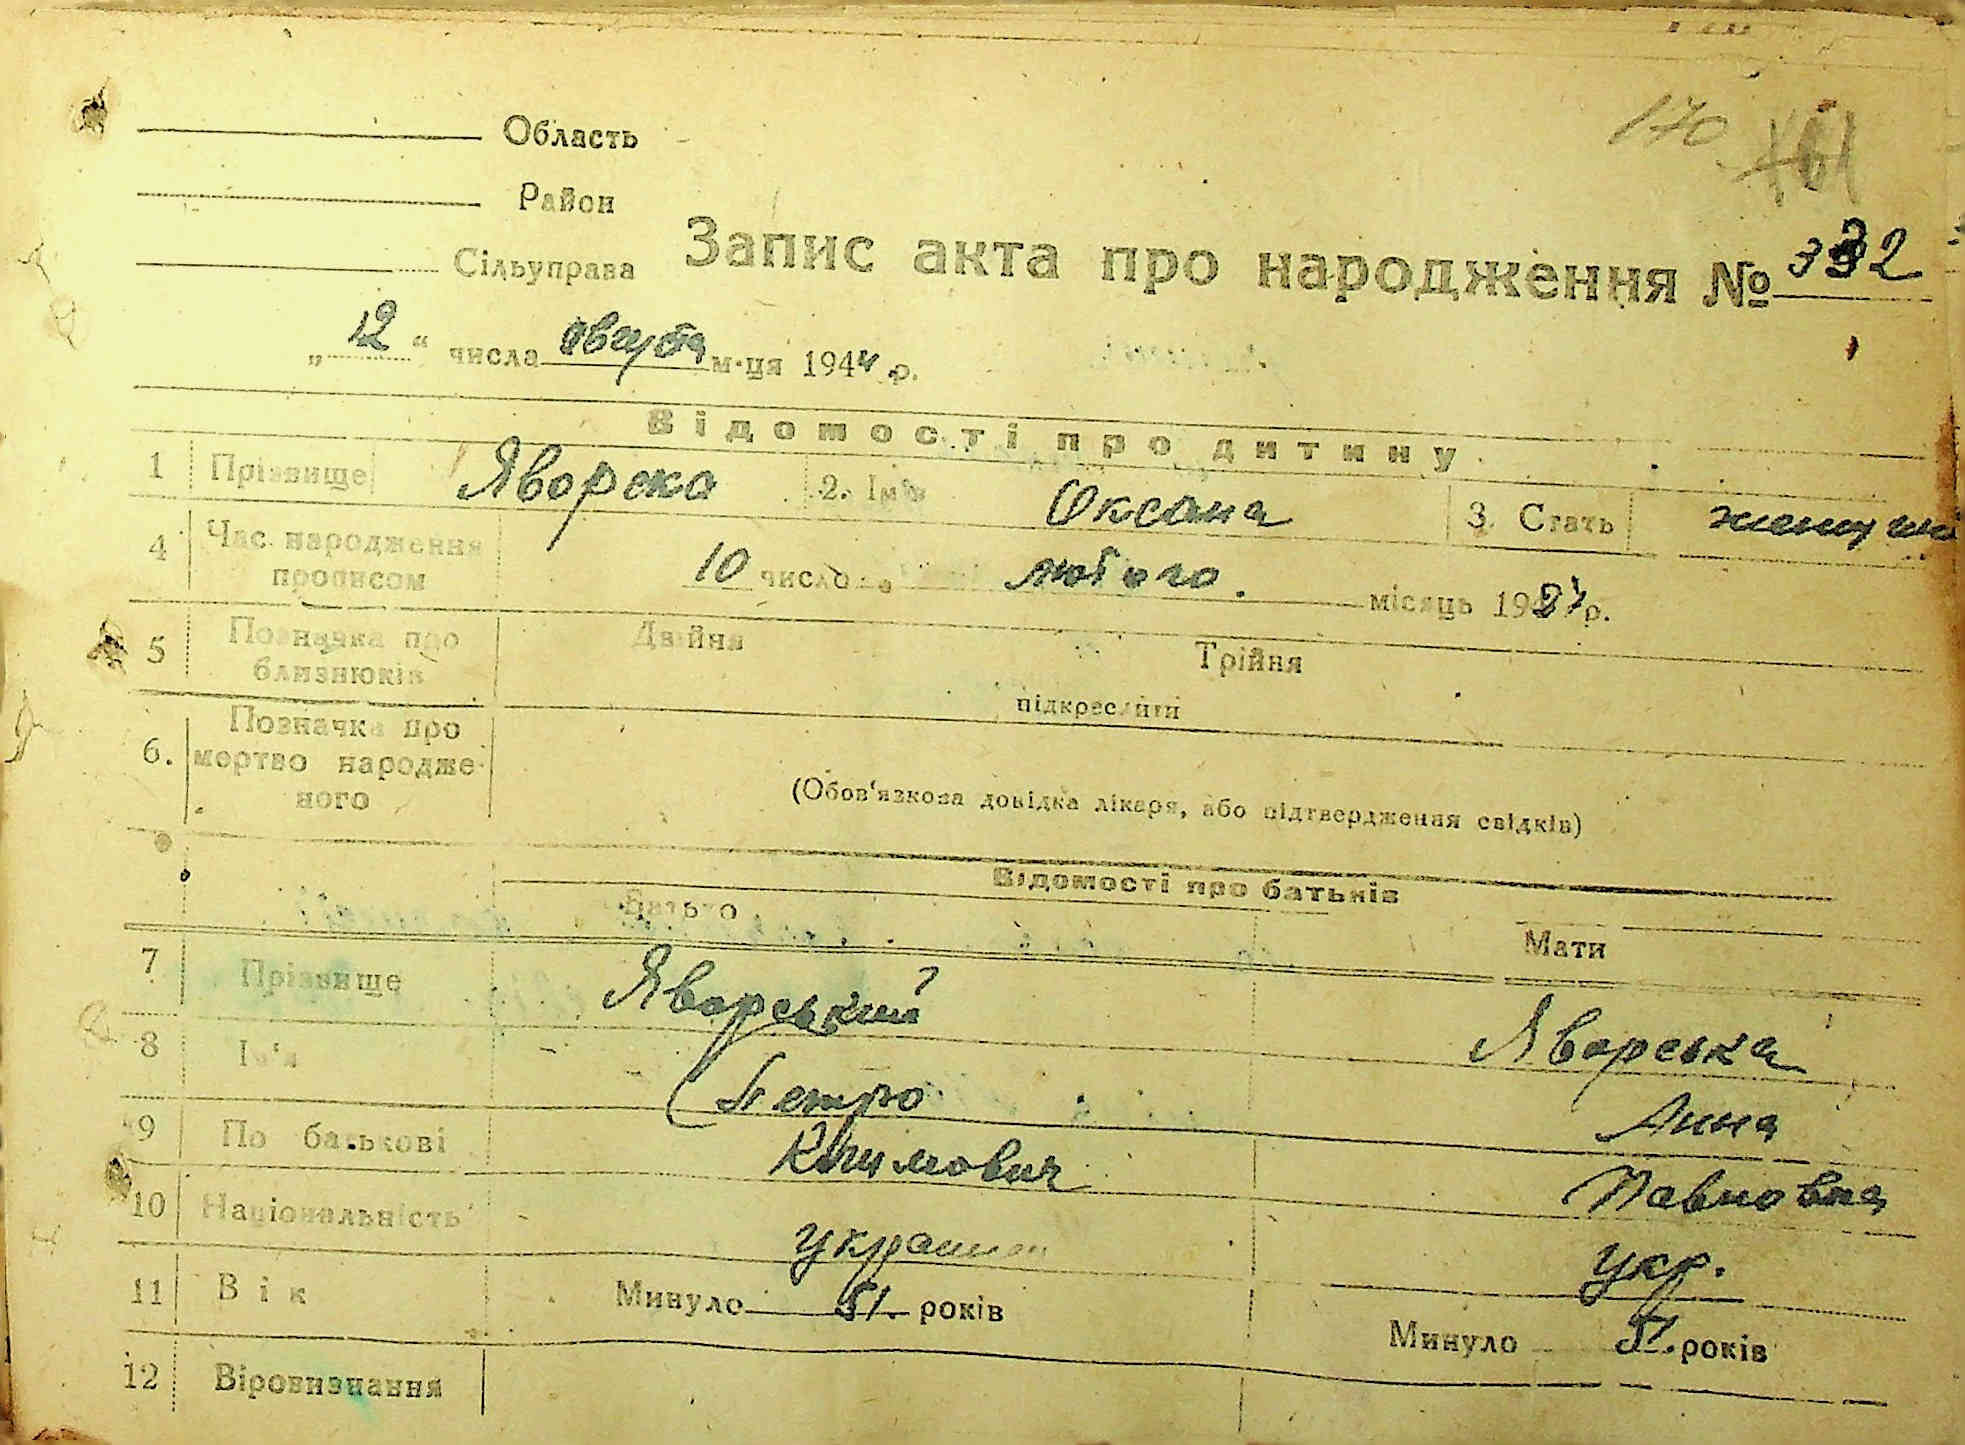 170 161
Область
Район
Сільуправа
Запис акта про народження № 332
„12“ числа августа м-ця 1944 р.
Відомості про дитину
1 Прізвище Яворска 2. Ім'я Оксана 3. Стать
4 Час народження прописом 10 число лютого місяць 19 р.
5 Позначка про близнюків Двійня Трійня
підкреслити
6. Позначка про мертво народженого
(Обов'язкова довідка лікаря, або підтвердження свідків)
Відомості про батьків
Батько Мати
7 Прізвище Яворський Яворська
8 Ім'я Петро Анна
9 По батькові Климович Павловна
10 Національність украинец укр.
11 Вік Минуло 51. років Минуло 51. років
12 Віровизнання